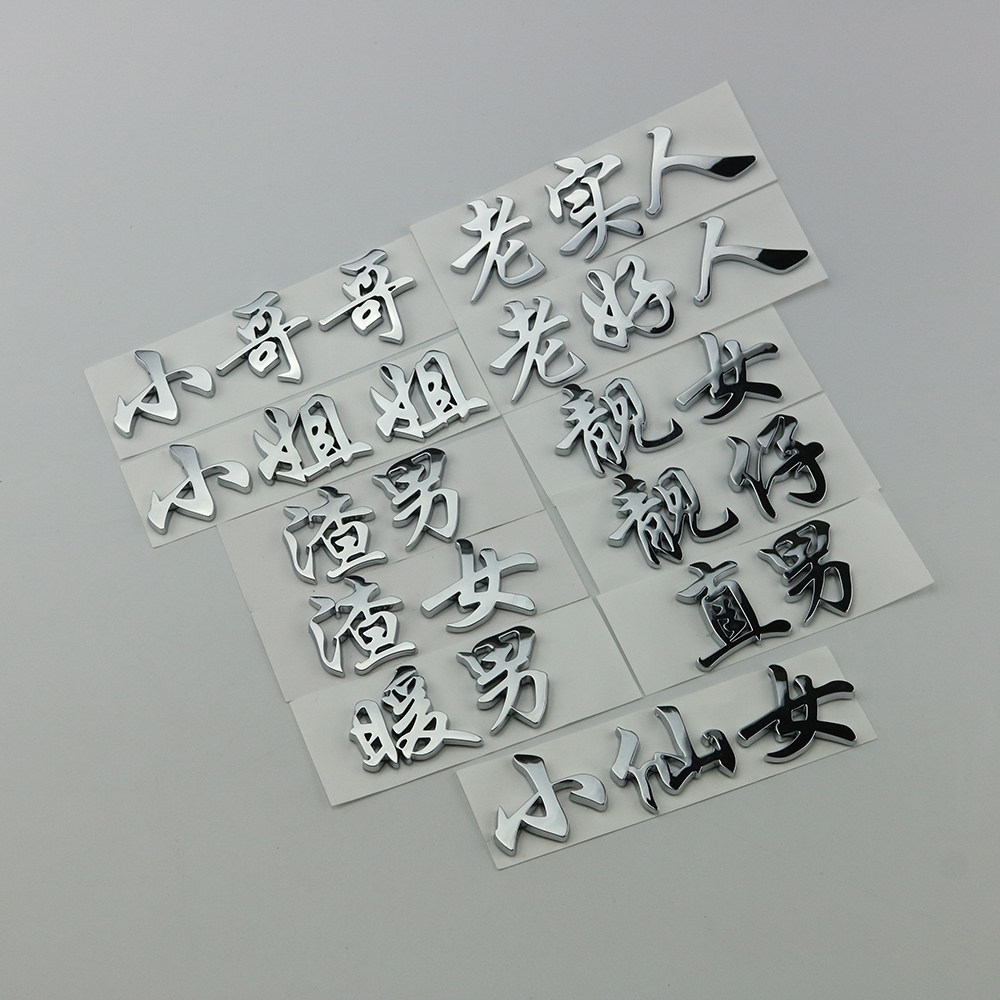 小哥哥
小姐姐
渣男
渣女
暖男
老实人
老好人
靓女
靓仔
直男
小仙女